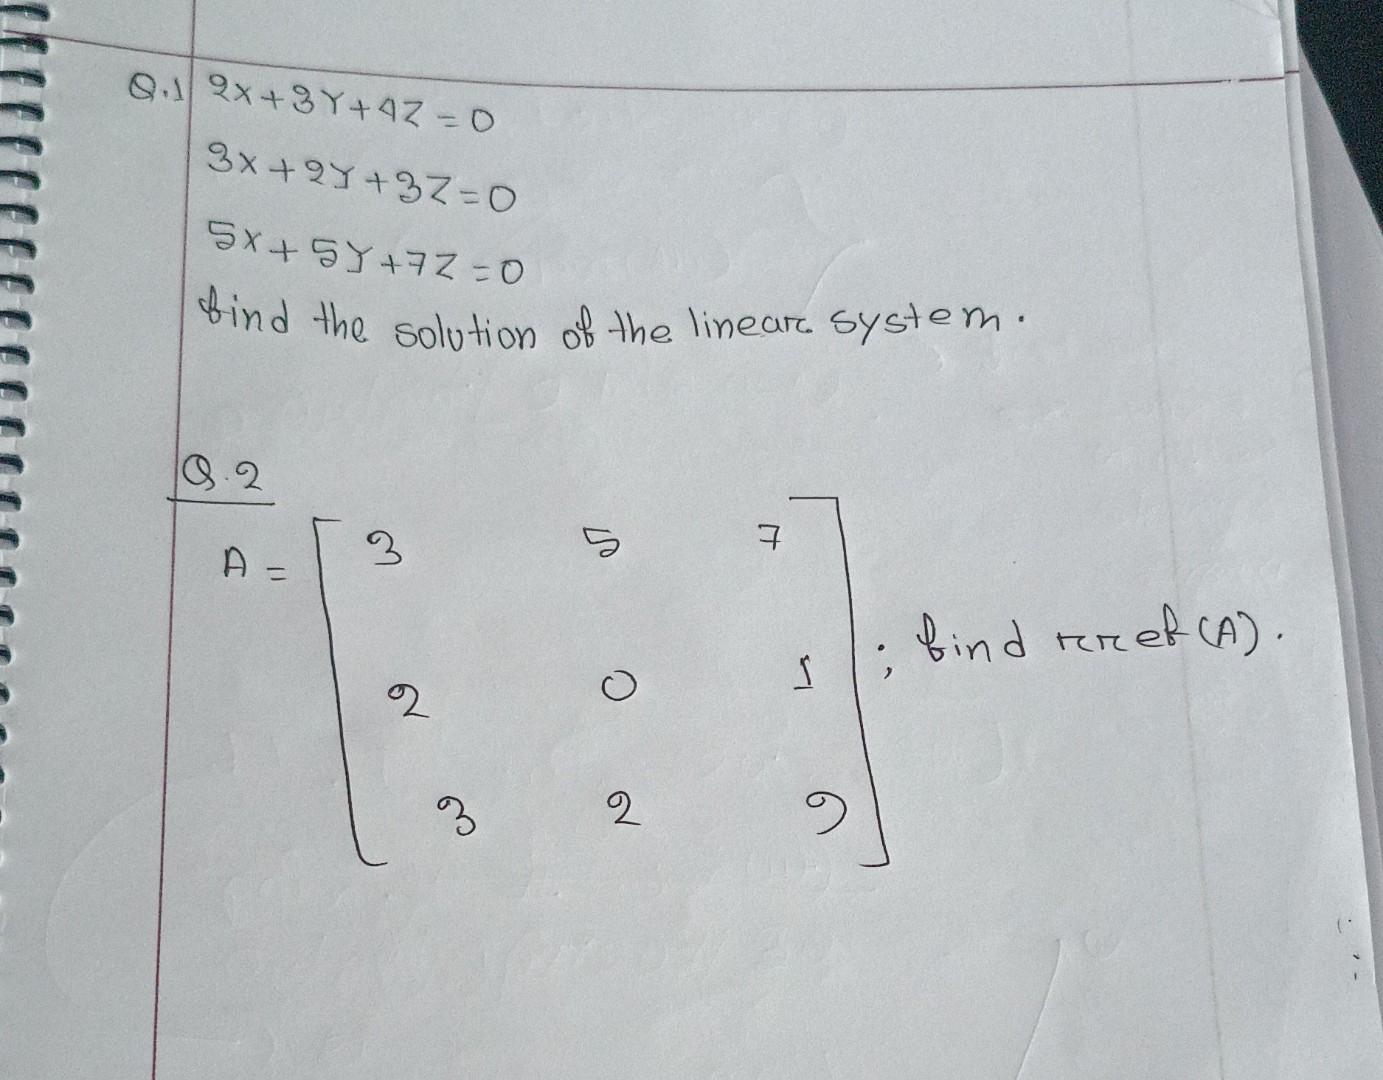 Q.1 2x+3Y+4Z=0
3x+2Y+3Z=0
5x+5Y+7Z=0
find the solution of the linear system.
Q.2
A = [ 3 5 7
2 0 1
3 2 9 ]
; find rref(A).